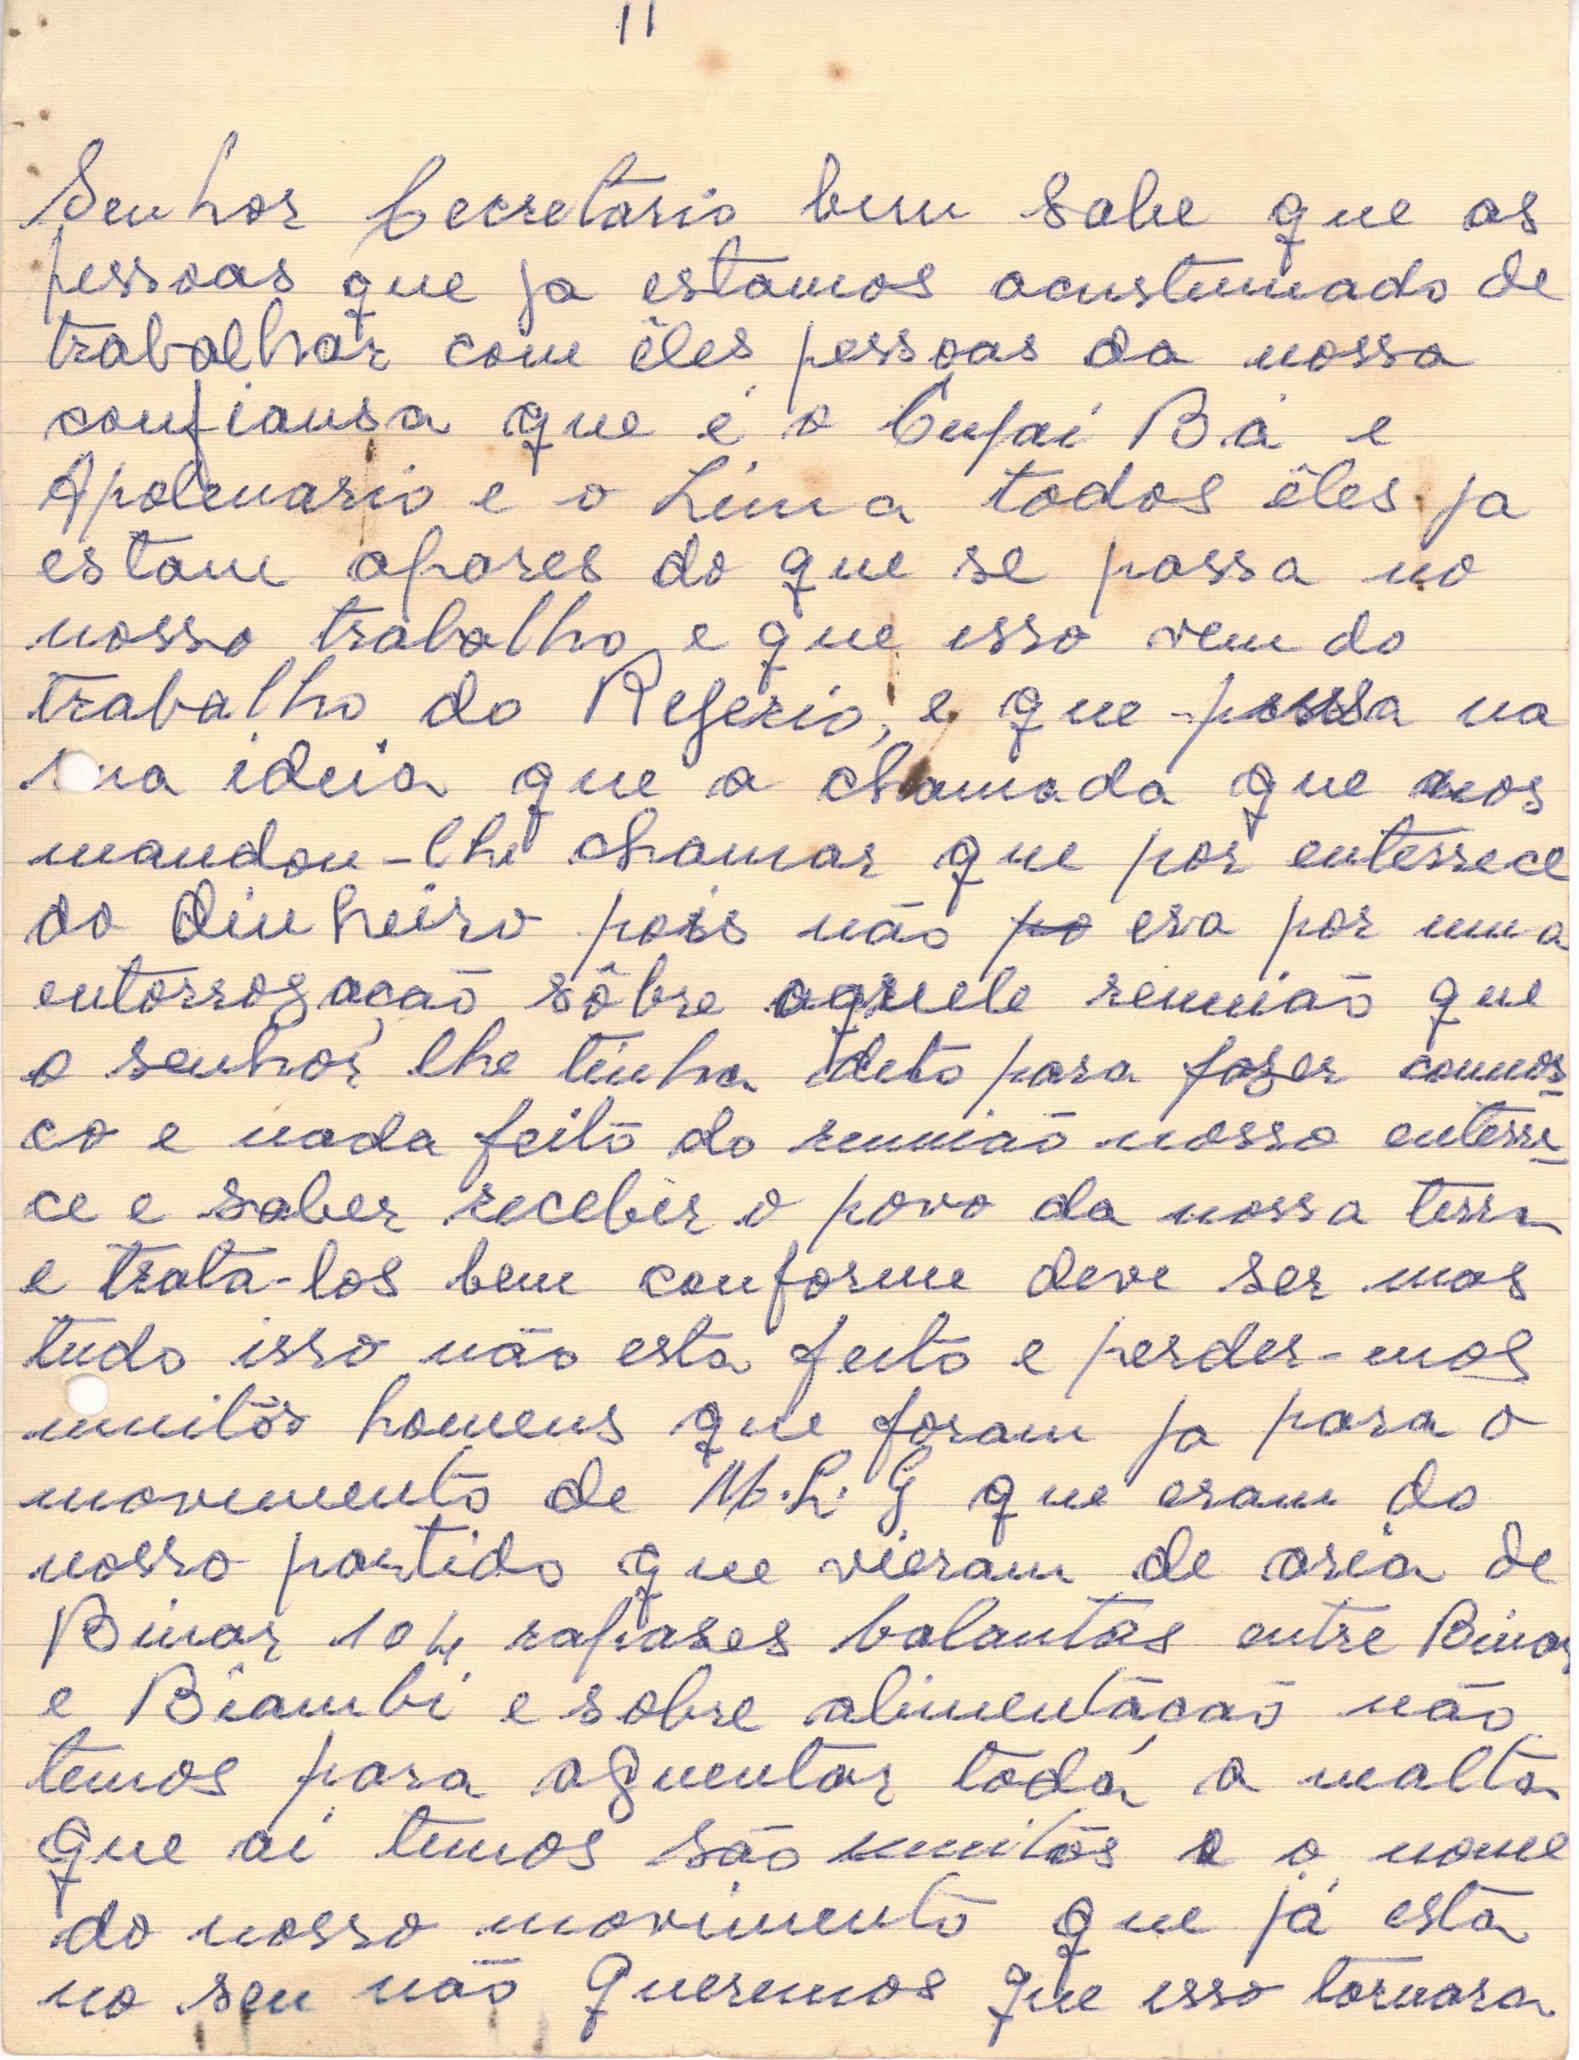 11
Senhor Cecretario bem sabe que as
pessoas que ja estamos acustumado de
trabalhar com êles pessoas da nossa
confiansa que é o Cupai Bá e
Apolenario e o Lima todos êles ja
estam apares do que se passa no
nosso trabalho e que isso vem do
trabalho do Regerio, e que possa na
sua ideia que a chamada que nos
mandou-lhe chamar que por enterrece
do dinheiro pois não po era por uma
entorrogação sôbre aquele reunião que
o senhor lhe tinha deto para fazer connos
co e nada feito do reunião nosso enterre
ce e saber receber o povo da nossa terra
e trata-los bem conforme deve ser mas
tudo isso não esta feito e perder-mos
muitos homens que foram ja para o
movimento de M.L.G que eram do
nosso partido que vieram de aria de
Binar 104 rapases balantas entre Binar
e Biambi e sobre alimentacão não
temos para aguentar toda a malta
que ai temos são muitos e o nome
do nosso movimento que já esta
no seu não queremos que isso tornara